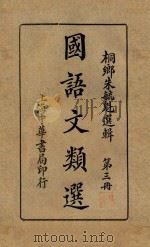 桐鄉朱毓魁選輯
第三冊
國語文類選
上海中華書局印行